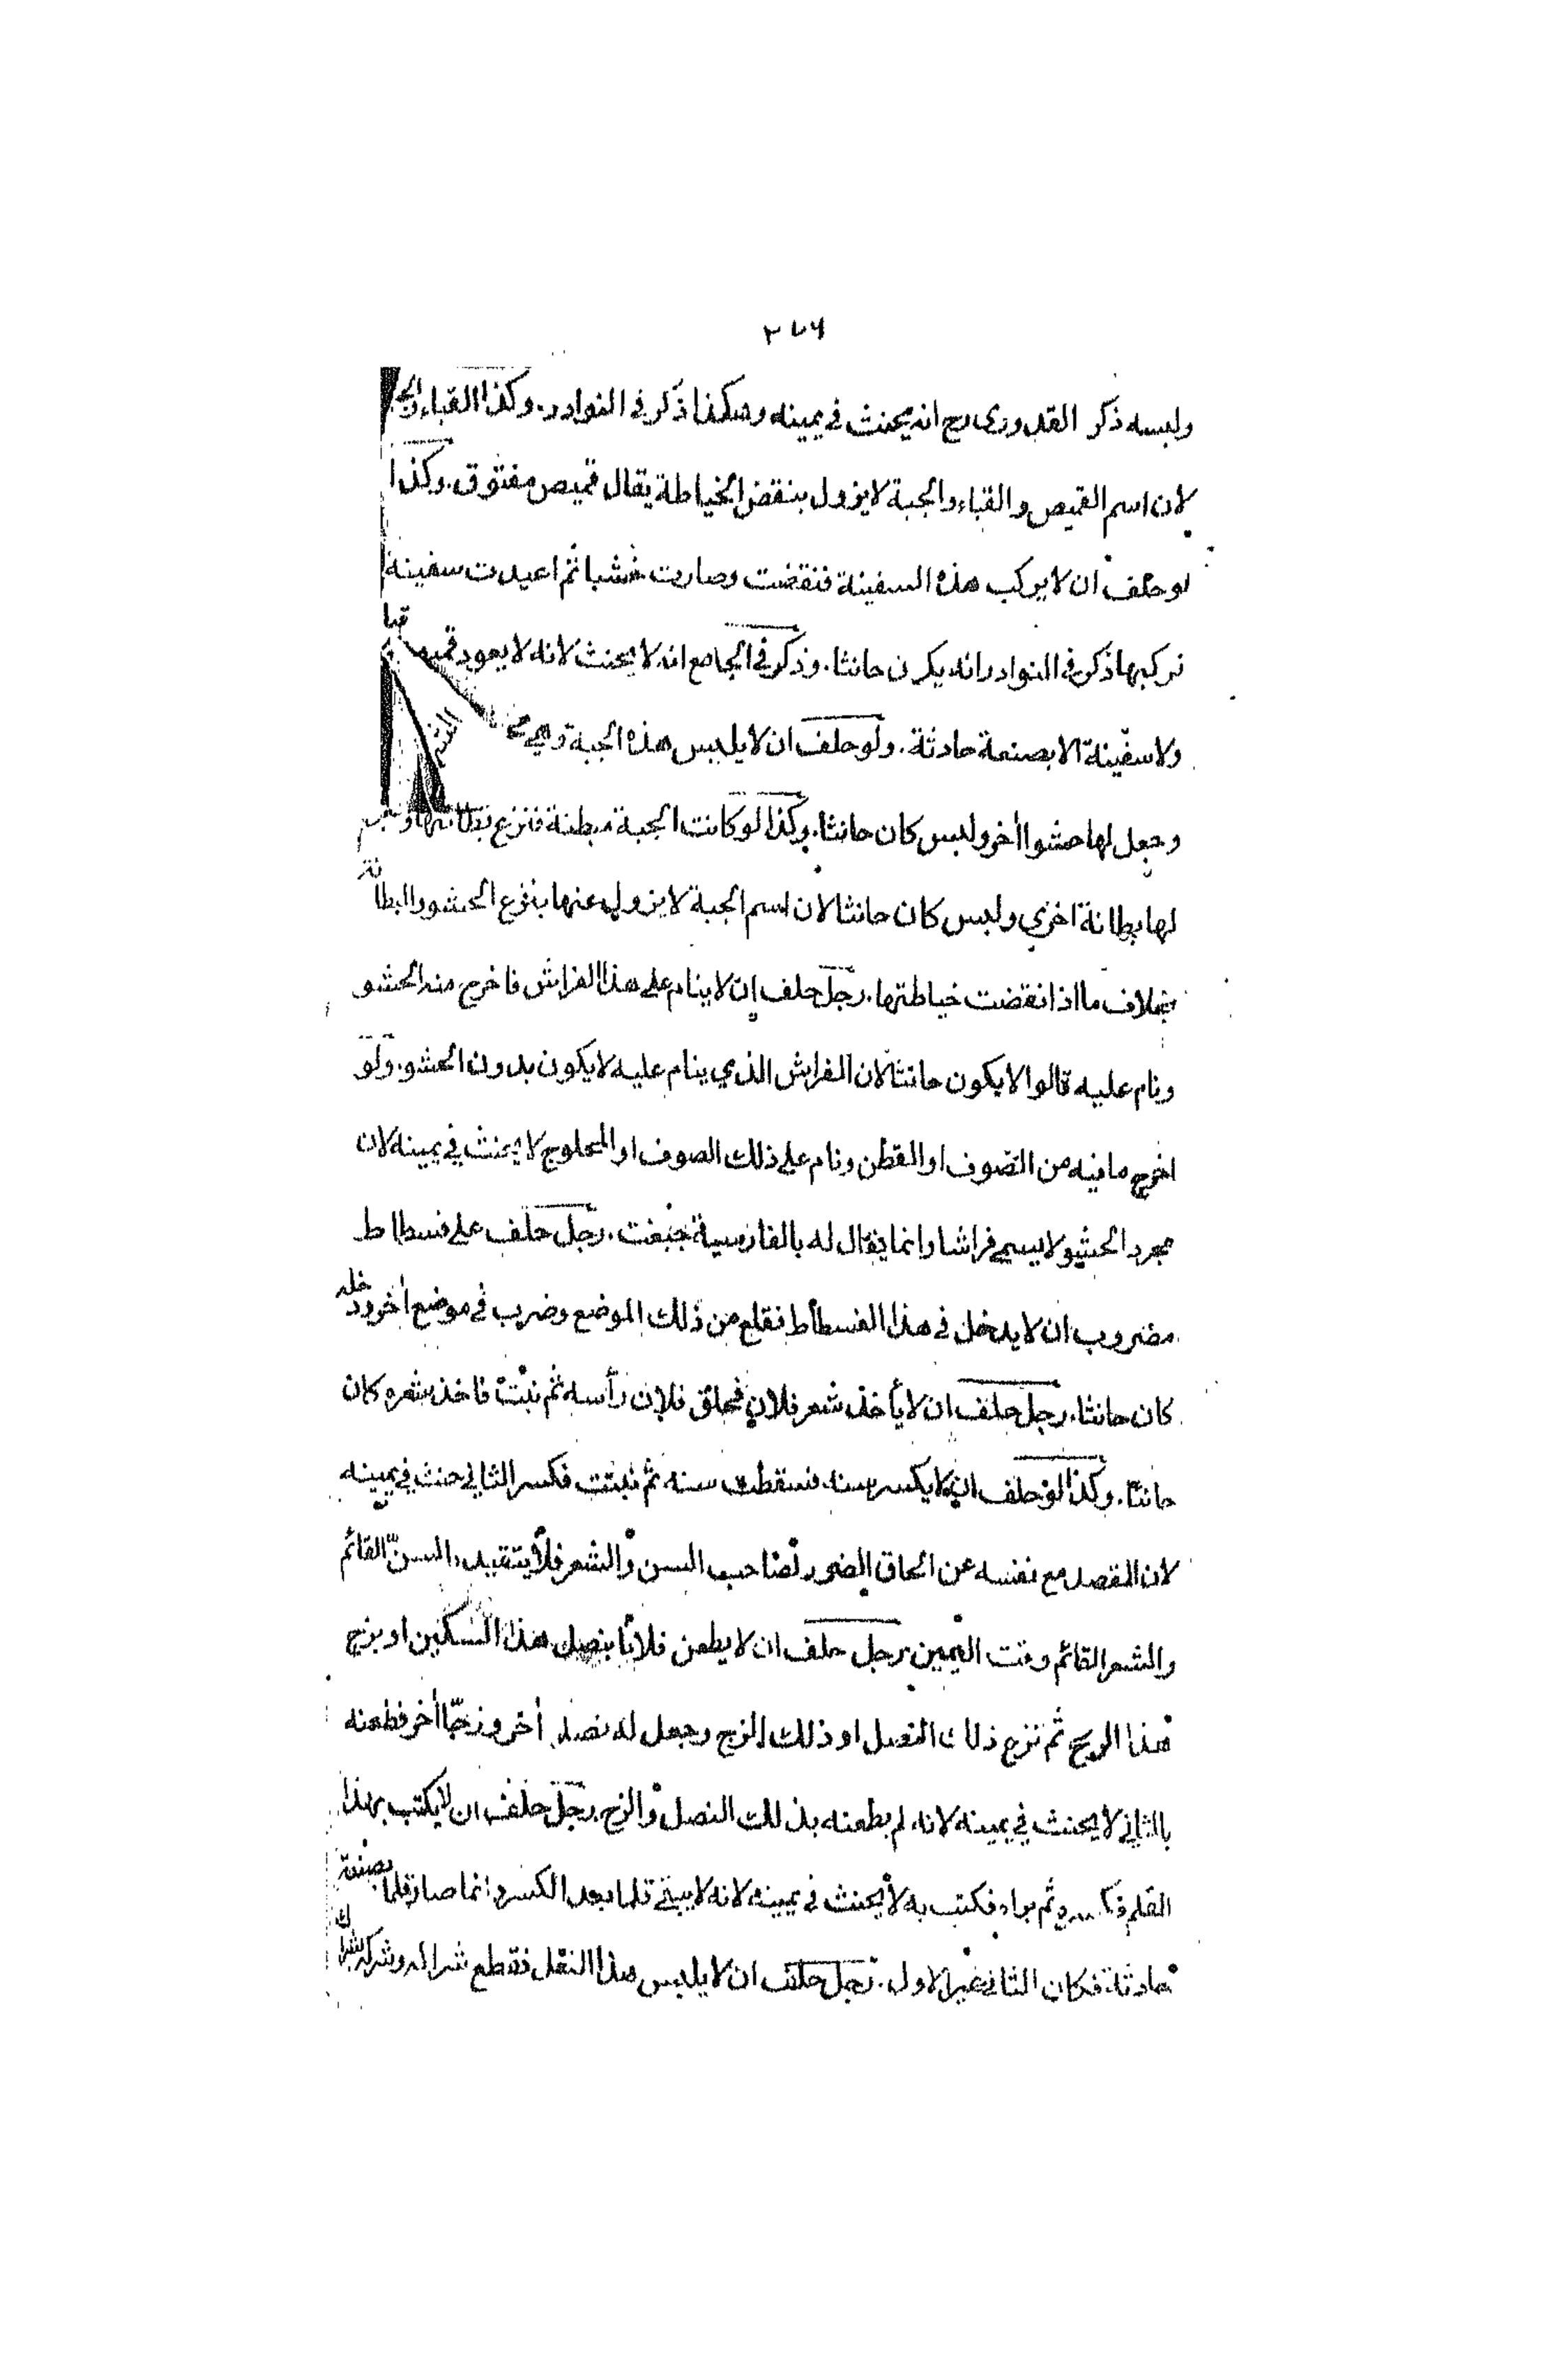 ٢٧٦
ولبسه ذكر القدوري رح انه يحنث في يمينه وهكذا ذكر في النوادر. وكذا القباء والجبة
لان اسم القميص والقباء والجبة لا يزول بنقض الخياطة يقال قميص مفتوق. وكذا
لو حلف ان لا يركب هذه السفينة فنقضت وصارت خشبا ثم اعيدت سفينة
فركبها ذكر في النوادر انه يكون حانثا. وذكر في الجامع انه لا يحنث لانه لا يعود قميصا قبا
ولا سفينة الا بصنعة حادثة. ولو حلف ان لا يلبس هذه الجبة وهي
وجعل لها حشوا أخر ولبس كان حانثا. وكذا لو كانت الجبة مبطنة فنزع بطانتها وجعل
لها بطانة اخرى ولبس كان حانثا لان اسم الجبة لا يزول عنها بنزع الحشو والبطانة
بخلاف ما اذا نقضت خياطتها. رجل حلف ان لا ينام على هذا الفراش فاخرج منه الحشو
ونام عليه قالوا لا يكون حانثا لان الفراش الذي ينام عليه لا يكون بدون الحشو. ولو
اخرج ما فيه من الصوف او القطن ونام على ذلك الصوف او المحلوج لا يحنث في يمينه لان
مجرد الحشو لا يسمى فراشا وانما يقال له بالفارسية جبغت. رجل حلف على فسطاط
مضروب ان لا يدخل في هذا الفسطاط فقلع من ذلك الموضع وضرب في موضع أخر ودخله
كان حانثا. رجل حلف ان لا يأخذ شعر فلان فحلق فلان رأسه ثم نبت فاخذ شعره كان
حانثا. وكذا لو حلف ان لا يكسر سنه فسقطت سنه ثم نبتت فكسر الثاني حنث في يمينه
لان المقصد مع نفسه عن الحاق الضرر لصاحب السن والشعر فلا يتقيد بالسن القائم
والشعر القائم وقت اليمين رجل حلف ان لا يطعن فلانا بنصل هذا السكين او بزج
هذا الرمح ثم نزع ذلك النصل او ذلك الزج وجعل له نصلا أخر وزجّا أخر فطعنه
بالثاني لا يحنث في يمينه لانه لم يطعنه بذلك النصل والزج. رجل حلف ان لا يكتب بهذا
القلم فكسره ثم براه فكتب به لا يحنث في يمينه لانه لا يبقى قلما بعد الكسر وانما صار قلما بصنعة
حادثة فكان الثاني غير الاول. رجل حلف ان لا يلبس هذا النعل فقطع شراكه وشركه بشراك